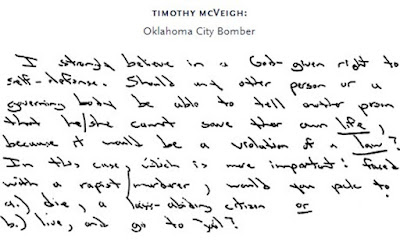 TIMOTHY MCVEIGH:
Oklahoma City Bomber
I strongly believe in a God-given right to
self-defense. Should any other person or a
governing body be able to tell another person
that he/she cannot save their own life,
because it would be a violation of a law?
In this case, which is more important: faced
with a rapist/murderer, would you pick to
a.) die, a law-abiding citizen or
b.) live, and go to "jail"?